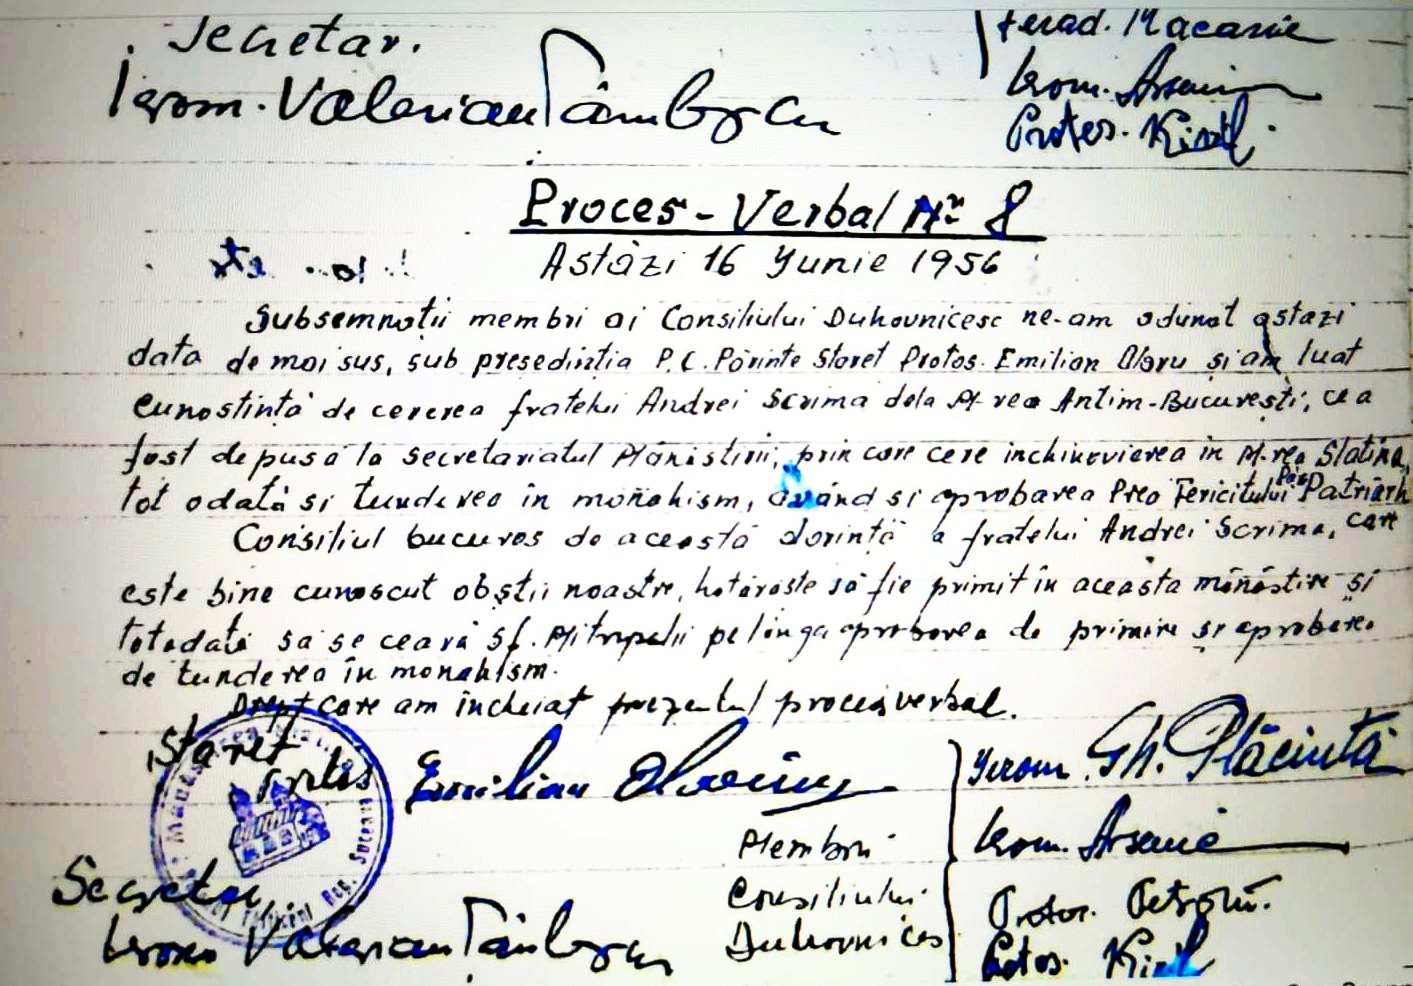 Secretar.
Ierom. Valerian Tâmbzan
Ierod. Macarie
Ierom. Arsenie
Protos. Kiril.
Proces-Verbal Nr 8
Astăzi 16 Yunie 1956
Subsemnații membri ai Consiliului Duhovnicesc ne-am adunat astazi
data de mai sus, sub presedinția P.C. Părinte Staret Protos. Emilian Olaru și am luat
cunostință de cererea fratelui Andrei Scrima dela M-rea Antim-București, ce a
fost depusă la secretariatul Mănăstirii, prin care cere inchinovierea in M-rea Slatina,
tot odată si tunderea în monahism, având si aprobarea Prea Fericitului Patriarh
Consiliul bucuros de această dorință a fratelui Andrei Scrima, care
este bine cunoscut obștii noastre, hotăraste să fie primit în aceasta mănăstire și
totodată sa se ceară Sf. Mitropolii pe lînga aprobarea de primire și aprobarea
de tunderea în monahism.
Drept care am încheiat prezentul proces verbal.
Staret
Protos
Emilian
Membrii
Consiliului
Duhovnicesc
Yerom. Gh. Plăcintă
Ierom. Arsenie
Protos. Petroniu.
Protos. Kiril
Secretar,
Ierom Valerian Tâmbzan
Reg. Suceava